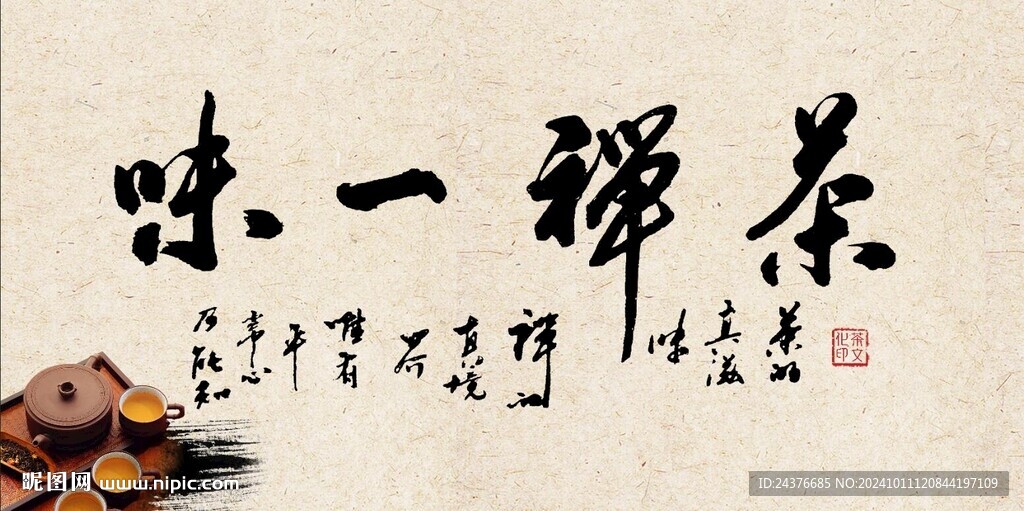 茶禪一味
茶的
真滋
味
禪的
真境
界
唯有
平
常心
乃能知
茶文
化印
昵图网 www.nipic.com
ID:24376685 NO:20241011120844197109